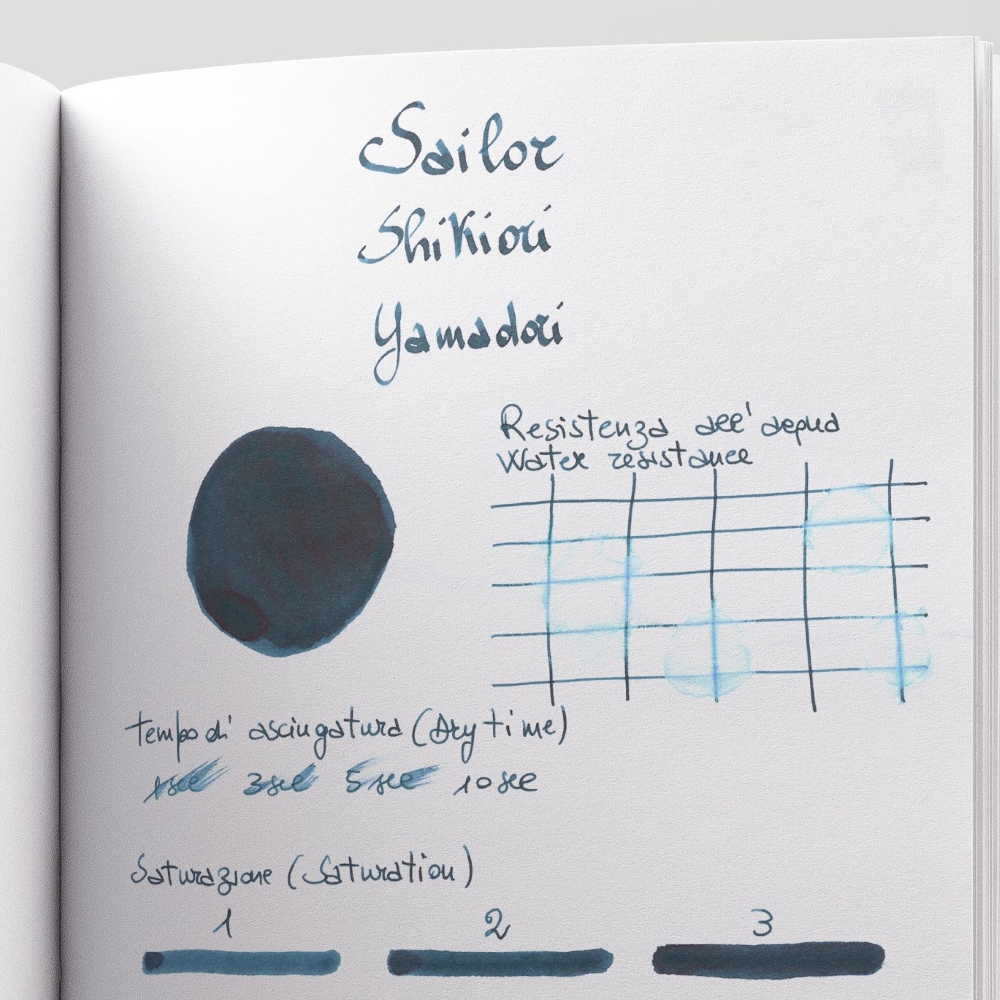 Sailor
Shikiori
Yamadori
Resistenza all'acqua
Water resistance
tempo di asciugatura (Dry time)
1sec 3sec 5sec 10sec
Saturazione (Saturation)
1 2 3